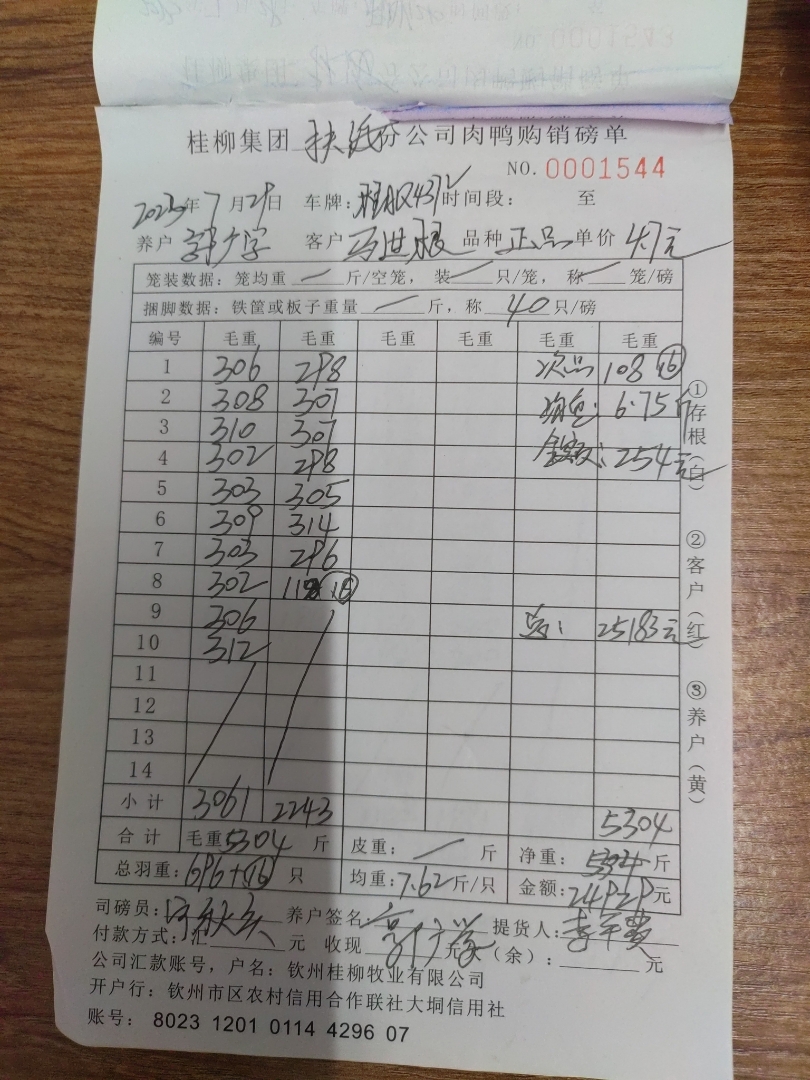 桂柳集团 扶绥分公司肉鸭购销磅单
NO. 0001544
2023年7月29日 车牌: 时间段: 至
养户 客户 马世根 品种 正品 单价 4.7元
笼装数据: 笼均重 — 斤/空笼, 装 — 只/笼, 称 — 笼/磅
捆脚数据: 铁筐或板子重量 — 斤, 称 40 只/磅
编号 毛重 毛重 毛重 毛重 毛重 毛重
1 306 298 次品 108 ⑯
2 308 307 均重: 6.75斤
3 310 307 金额: 254元
4 302 298
5 303 305
6 309 314
7 303 296
8 302 118
9 306 总: 25183元
10 312
11
12
13
14
小计 3061 2243 5304
合计 毛重 5304 斤 皮重: — 斤 净重: 5304 斤
总羽重: 696+⑯ 只 均重: 7.62 斤/只 金额: 24929 元
司磅员: 养户签名: 提货人:
付款方式: 汇 元 收现 元 (余): 元
公司汇款账号, 户名: 钦州桂柳牧业有限公司
开户行: 钦州市区农村信用合作联社大垌信用社
账号: 8023 1201 0114 4296 07
①存根(白)
②客户(红)
③养户(黄)